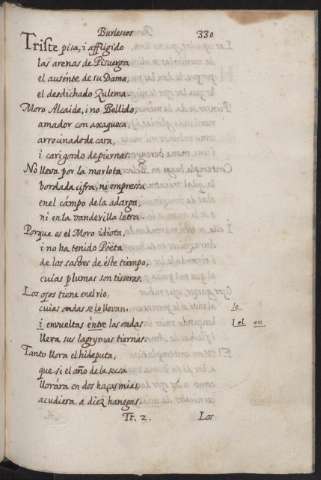 Burlescos 330
Triste pisa, i affligido
las arenas de Pisuerga
el ausente de su Dama,
el desdichado Zulema.
Moro Alcaide, i no Bellido,
amador con axaqueca
arrocinado de cara,
i carigordo de piernas.
No lleva por la marlota
bordada cifra, ni empresa
en el campo de la adarga,
ni en la vanderilla letra.
Porque es el Moro idiota,
i no ha tenido Poëta
de los sastres de este tiempo,
cuias plumas son tiseras.
Los ojos tiene en el rio,
cuias ondas se lo llevan, lo
i envueltas entre las ondas
lleva sus lagrymas tiernas.
Tanto llora el hideputa,
que si el año de la seca
llorára en dos haças mias,
acudiera a diez hanegas.
Tr. 2. Los